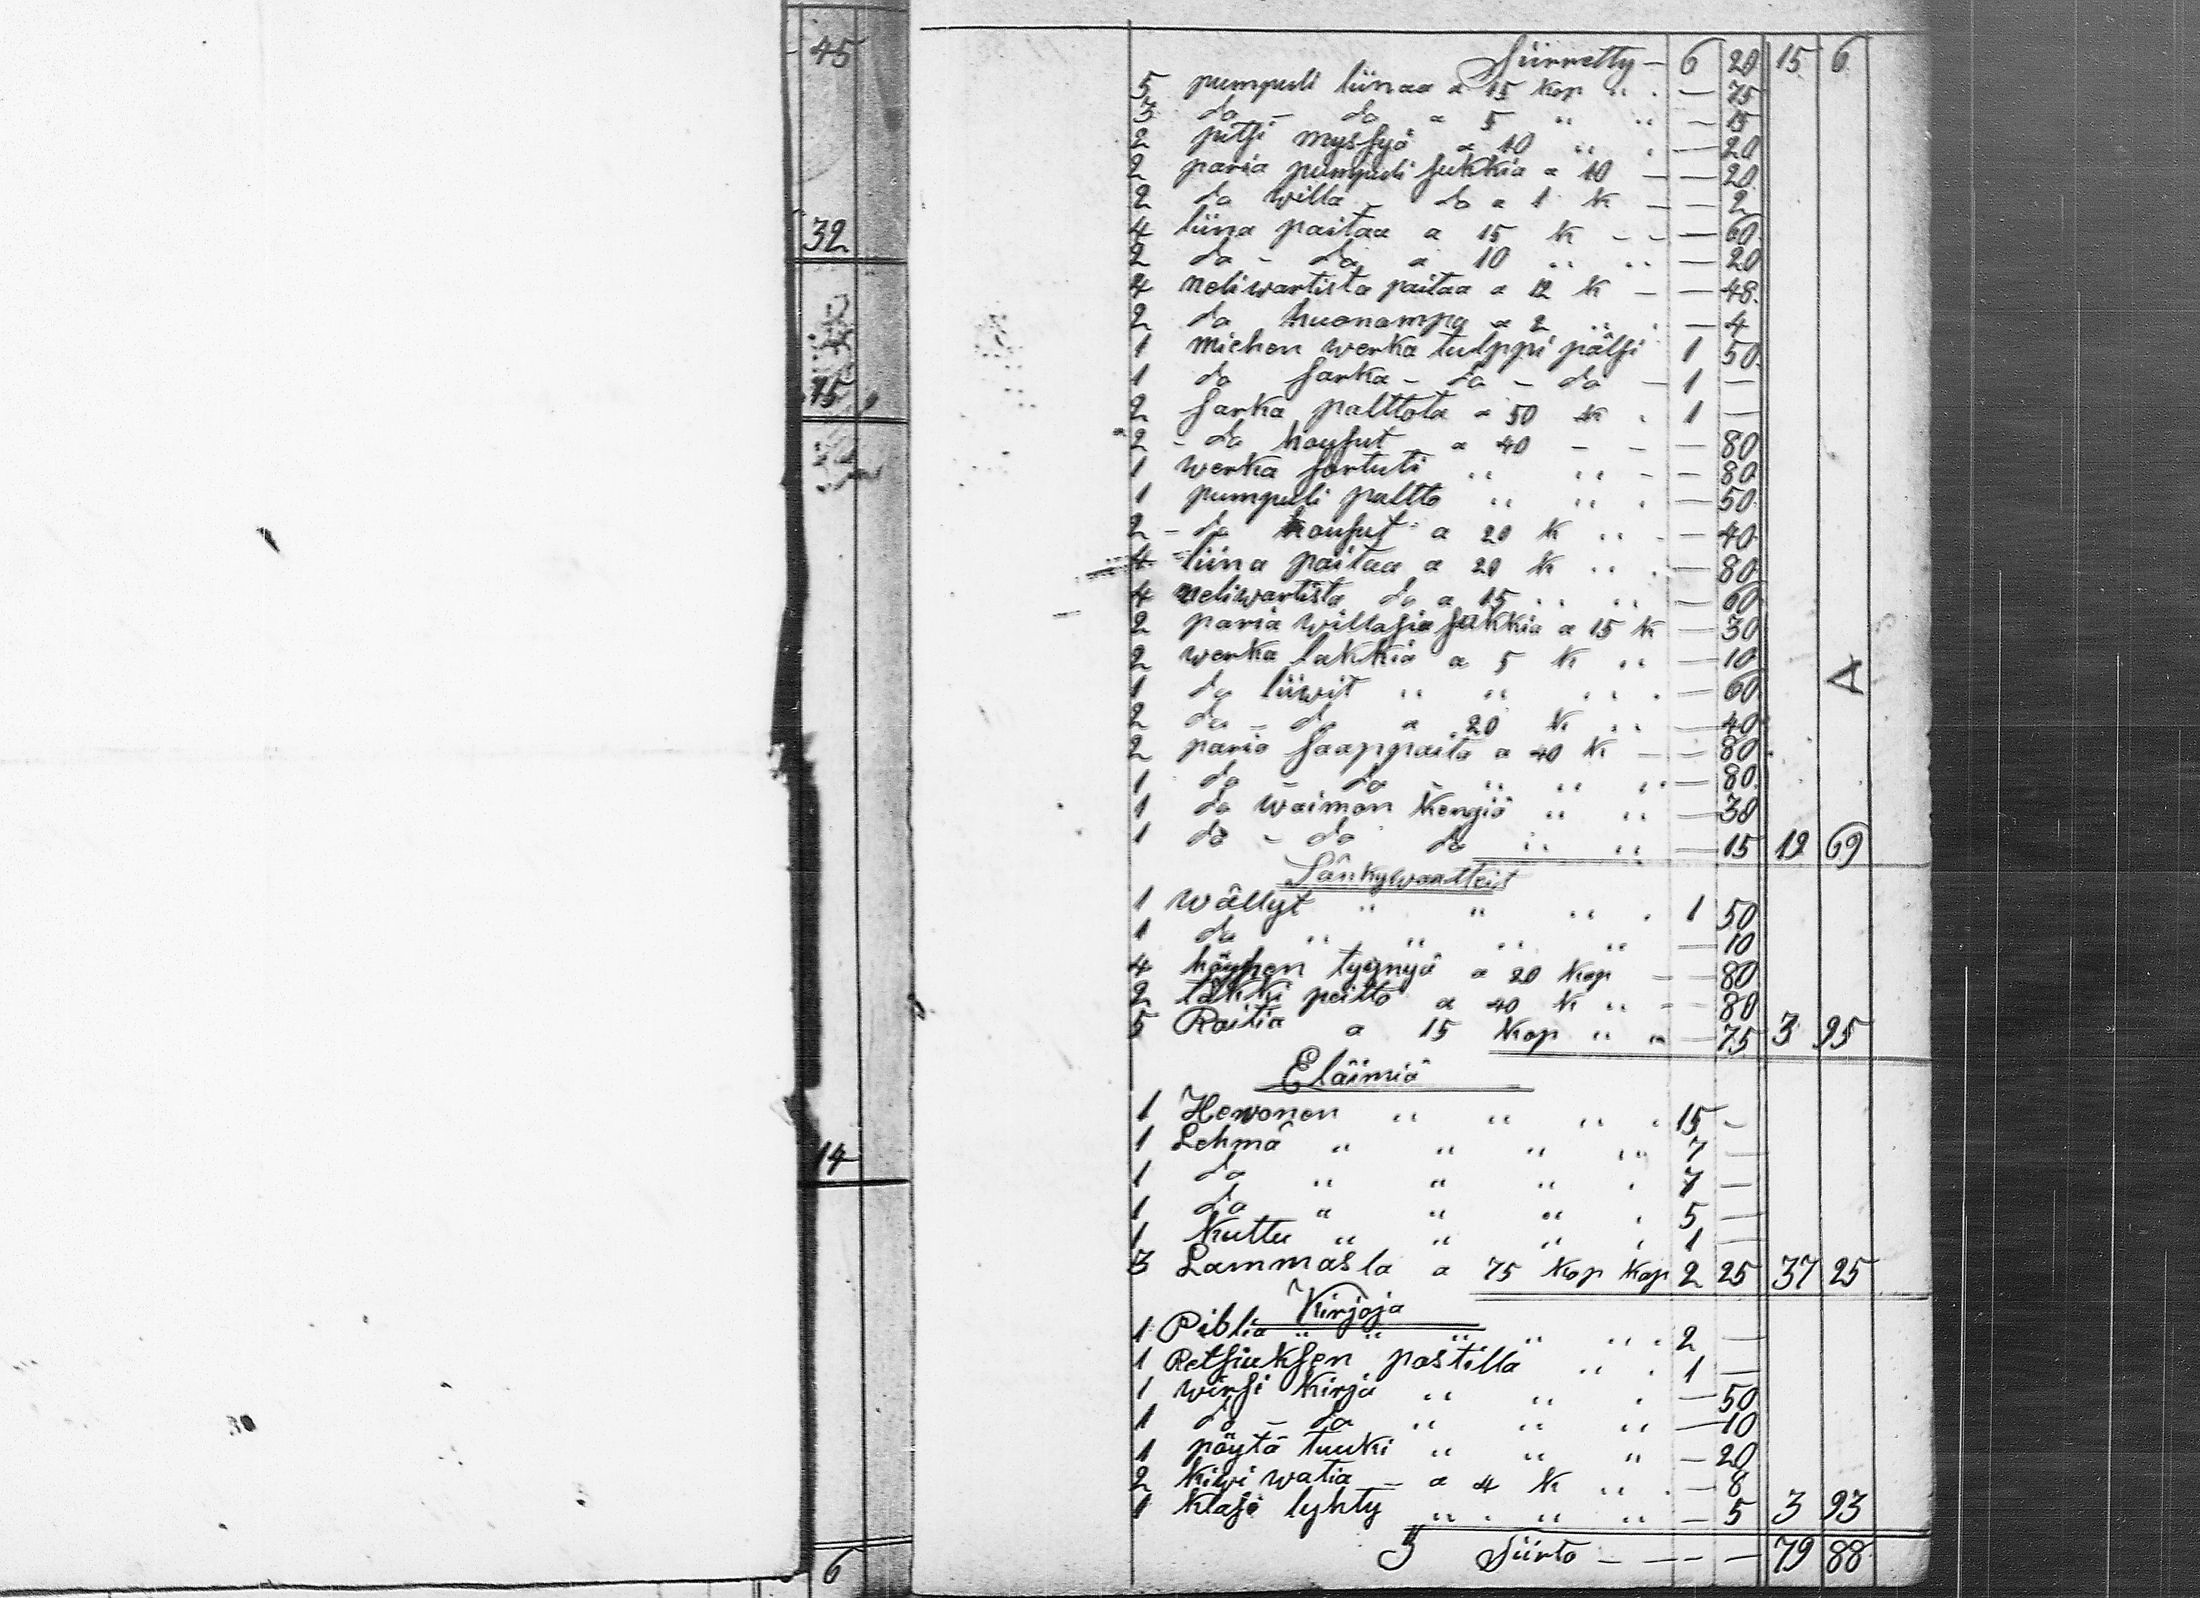 45
32
15
14
6
Siirretty — 6 20 15 6
5 pumpuli liinaa a 15 Kop " . — 75
3 do - do a 5 " " — 15
2 pitsi myssyä a 10 " . — 20
2 paria pumpuli sukkia a 10 — — 20
2 do willa - do a 1 K — — 2
4 liina paitaa a 15 K - - — 60
2 do - do a 10 " " — 20
4 neliwartista paitaa a 12 K — — 48
2 do huonompa a 2 " . — 4
1 miehen werka tulppi pälsi 1 50
1 do sarka - do - do — 1 —
2 sarka palttota a 50 K . 1 —
2 - do housut a 40 - - — 80
1 werka sortuti " " - — 80
1 pumpuli paltto " " . — 50
2 - do housut a 20 K " . — 40
4 liina paitaa a 20 K " . — 80
4 neliwartista do a 15 " " — 60
2 paria willasia sukkia a 15 K — 30
2 werka lakkia a 5 K " — 10
1 do liiwit " " " . — 60
2 do - do a 20 K " — 40
2 paria saappaita a 40 K — — 80
1 do - do - " " " — 80
1 do waimon Kengiä " " — 30
1 do - do do " " — 15 12 69
Sänkywaatteit
1 wällyt " " " . 1 50
1 do " " " " — 10
4 höyhen tyynyä a 20 Kop — — 80
2 täkki peitto a 40 K " - — 80
5 Raitia a 15 Kop " " — 75 3 95
Eläimiä
1 Hewonen " " " . 15 -
1 Lehmä " " " " 7 —
1 do " " " . 7 —
1 do " " " . 5 —
1 Kuttu " " " . 1 —
3 Lammasta a 75 Kop Kop 2 25 37 25
Kirjoja
1 Piblia " " " " " . 2 —
1 Retsiuksen postilla " . 1 —
1 wirsi Kirja " " . — 50
1 do - do " " " — 10
1 pöytä tuuki " " " — 20
2 kiwi watia — a 4 K " . — 8
1 Klasi lyhty " . " " — 5 3 93
Siirto — — — — 79 88